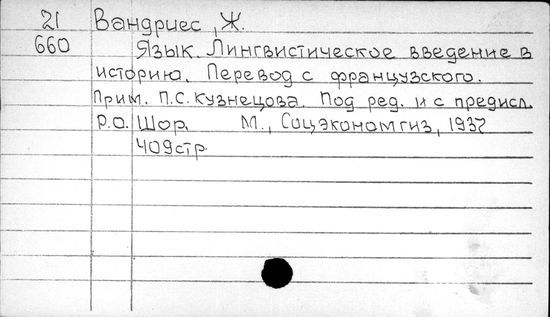 21 Вандриес, Ж.
660 Язык. Лингвистическое введение в
историю. Перевод с французского.
Прим. П.С. Кузнецова. Под ред. и с предисл.
Р.О. Шор. М., Соцэкономгиз, 1937
409 стр.